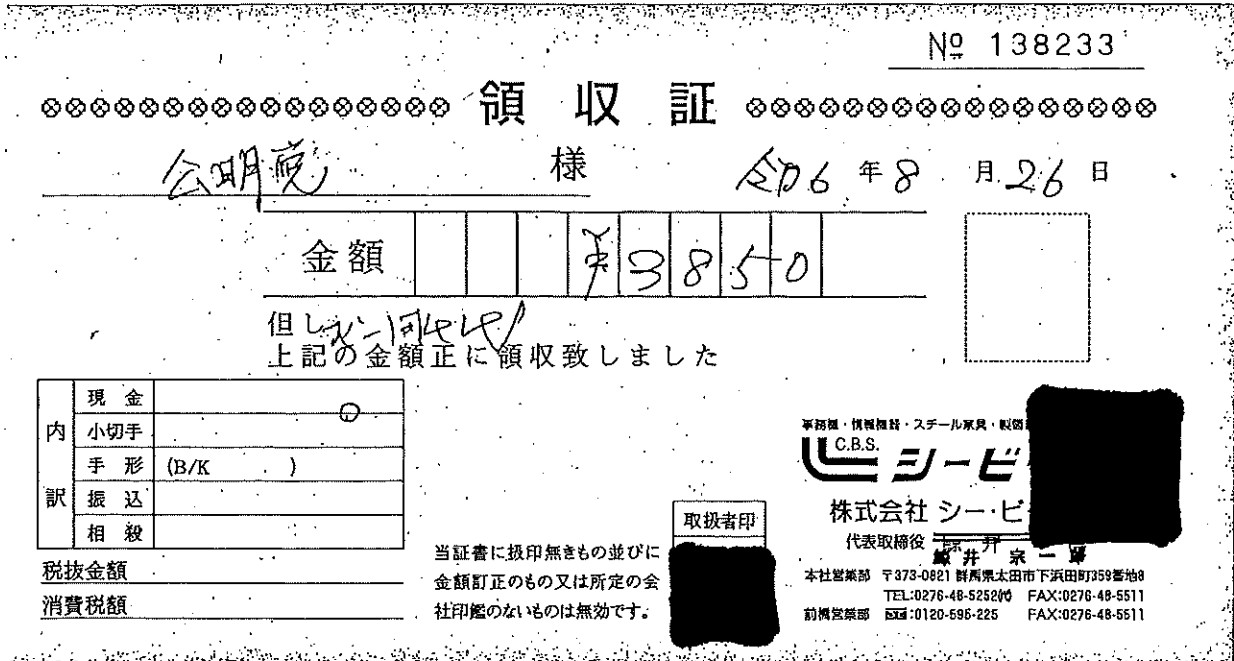 № 138233
領収証
公明党 様 令和6年8月26日
金額 ¥3850
但し
上記の金額正に領収致しました
内訳
現金
小切手
手形 (B/K )
振込
相殺
税抜金額
消費税額
当証書に扱印無きもの並びに
金額訂正のもの又は所定の会
社印鑑のないものは無効です。
取扱者印
事務機・情報機器・スチール家具・
C.B.S.
シービ
株式会社 シー・ビ
代表取締役
井 宗一
本社営業部 〒373-0821 群馬県太田市下浜田町359番地8
TEL:0276-48-5252㈹ FAX:0276-48-5511
前橋営業部 :0120-596-225 FAX:0276-48-5511